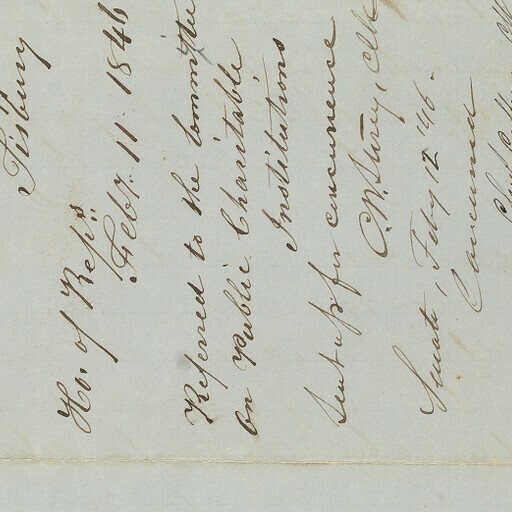 Tisbury
Ho. of Reps
Feby. 11. 1846
Referred to the Committee
on Public Charitable
Institutions
Sent up for concurrence
C.W. Storey, Clk
Senate, Feby 12 '46.
Concurred